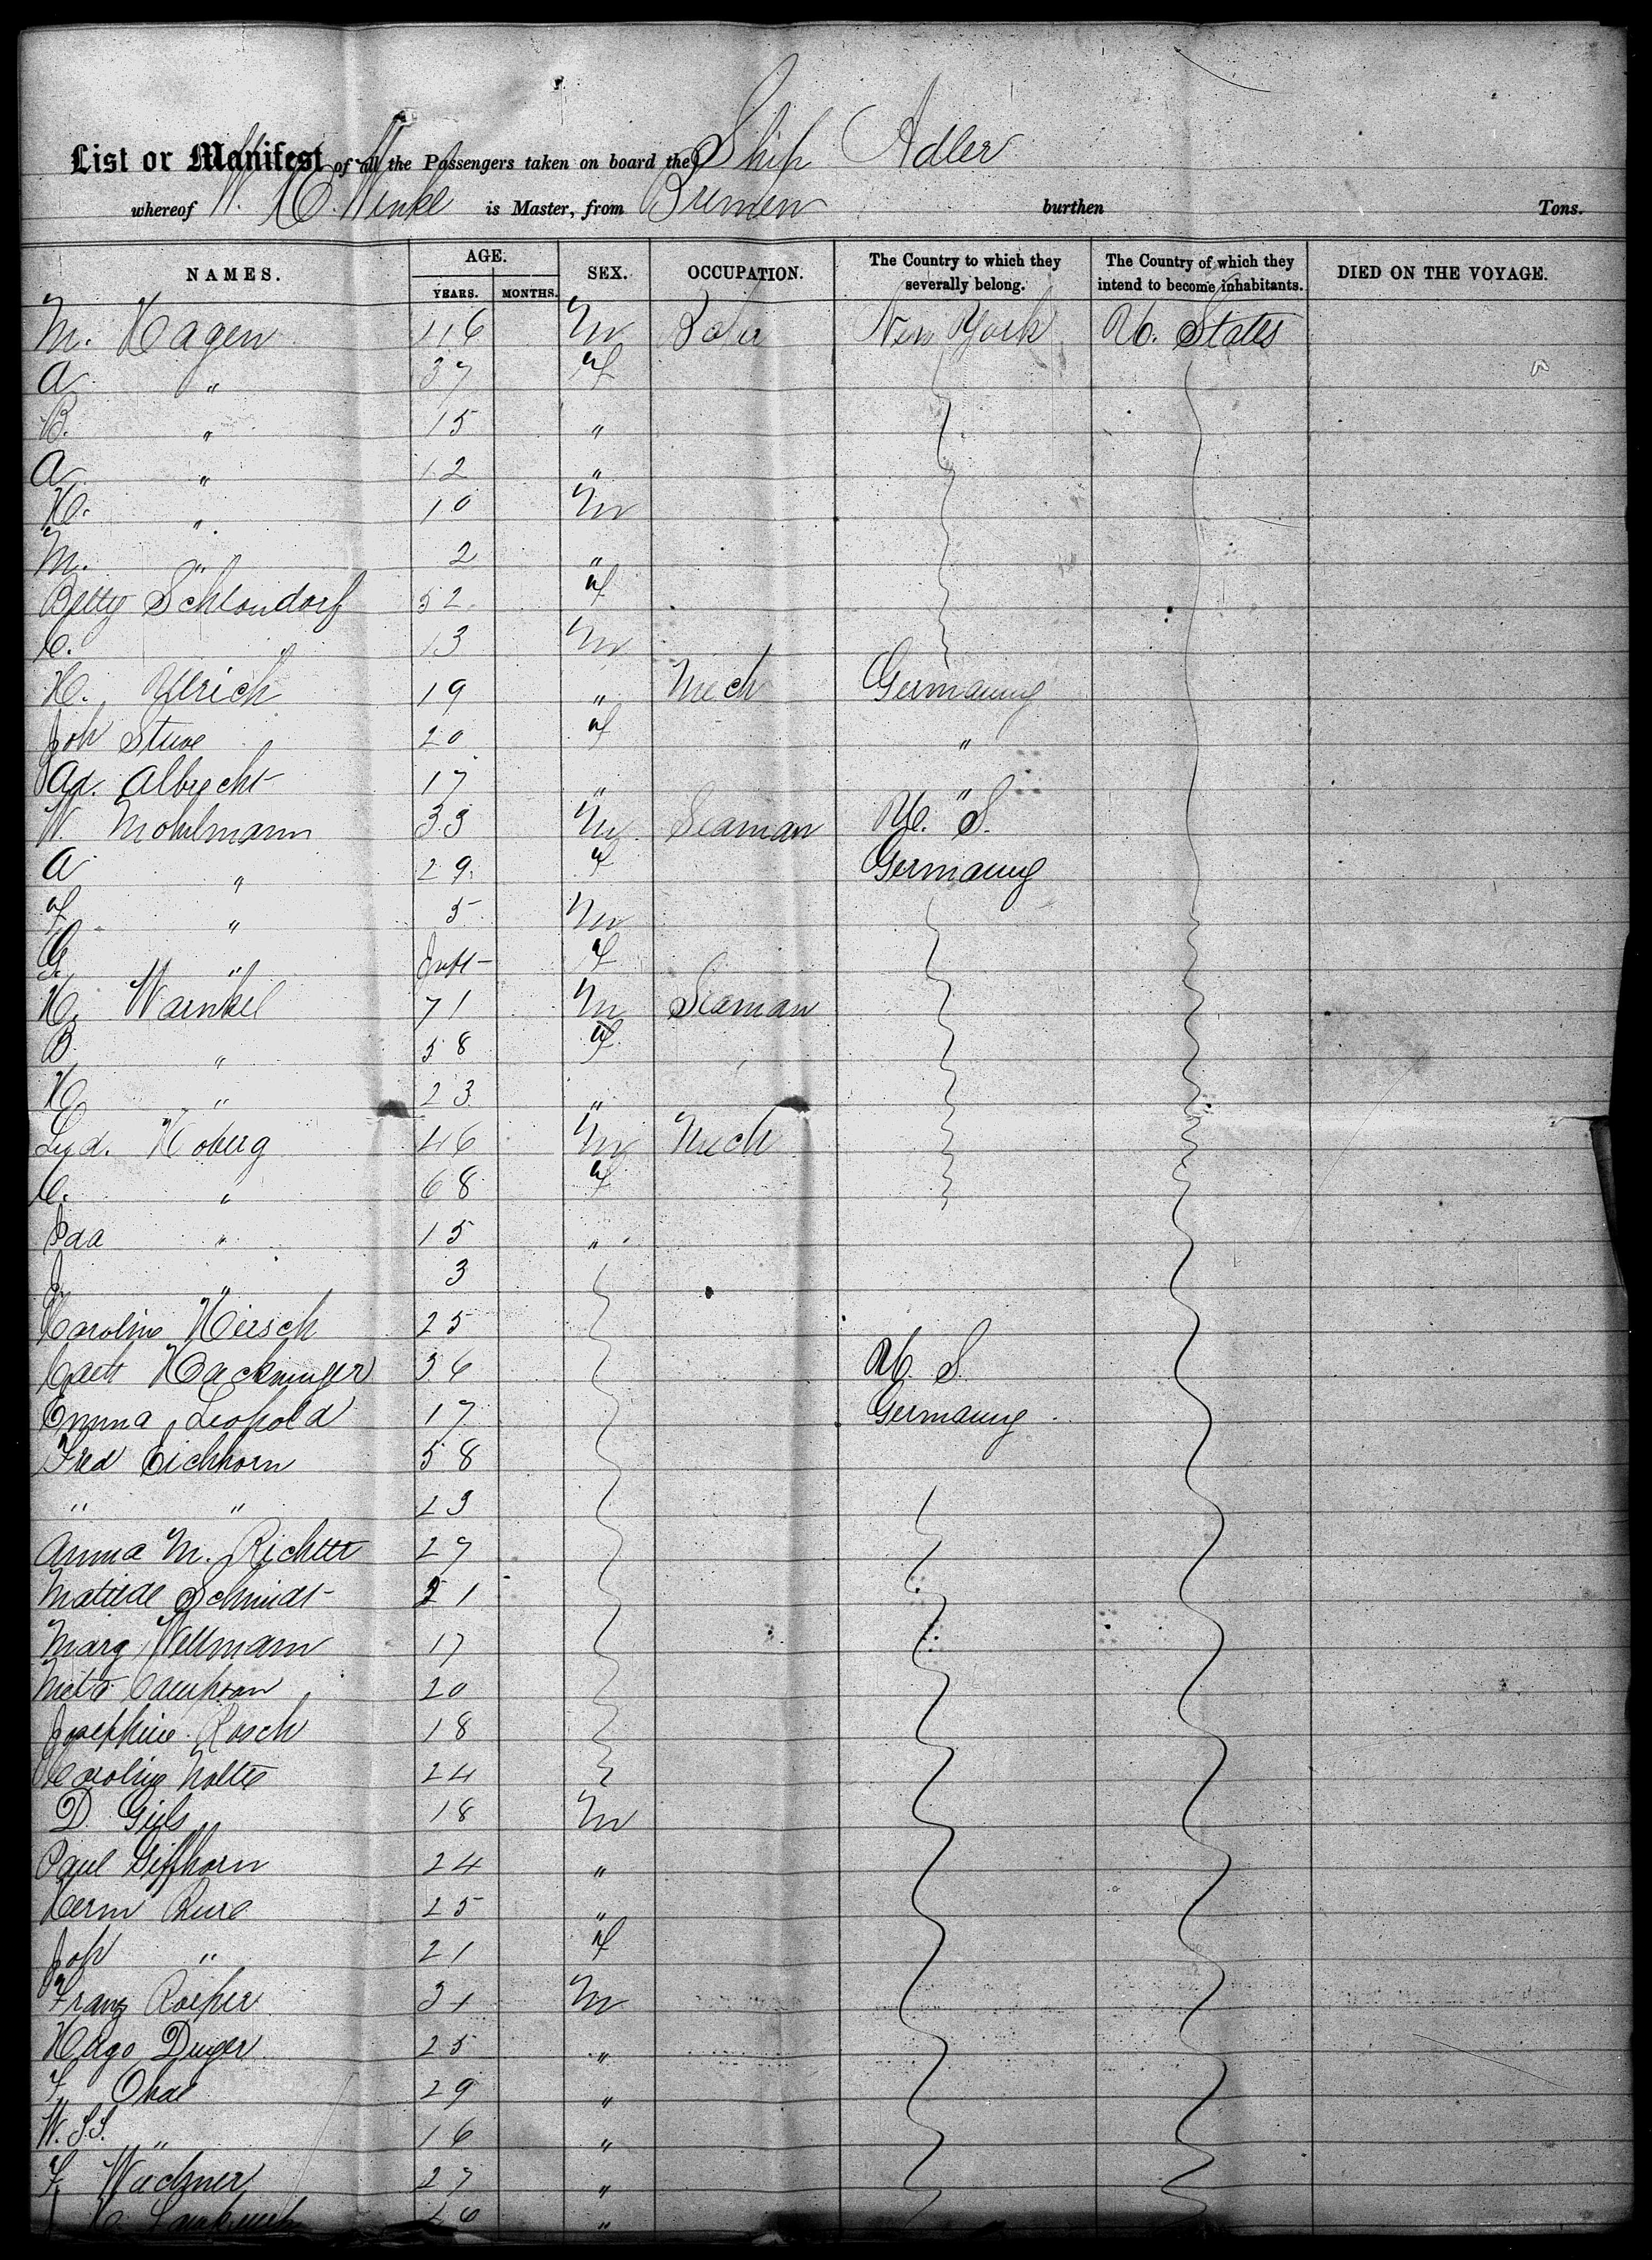 List or Manifest of all the Passengers taken on board the Ship Adler
whereof W. H. Winkl is Master, from Bremen burthen Tons.
NAMES. AGE. YEARS. MONTHS. SEX. OCCUPATION. The Country to which they severally belong. The Country of which they intend to become inhabitants. DIED ON THE VOYAGE.
M. Hagen 46 M New York U. States
A " 37 f
B. " 15 "
A " 12 "
H. " 10 M
M. " 2 "
Betty Schlondorf 52 f
C. 13 M
H. Ulrich 19 " Mech Germany
Joh Stuve 20 f "
Ad. Albrecht 17 " "
W. Mohlmann 33 M Seaman U. S.
A " 29 f Germany
f " 5 M
G. " Inft f
H. Warnkel 71 M Seaman
B " 58 f
H " 23 "
Lud. Hoberg 46 M Mech
C. " 68 f
Ida " 15 "
J " 3
Karoline Hirsch 25
Cath 36 U. S.
Emma Leopold 17 Germany
Fred Eichhorn 58
" " 23
Anna M. Richter 27
Matilde Schmidt 21
Marg Wellmann 17
Meta 20
Josephine Rosch 18
Karoline Nolte 24
D. Giels 18 M
Paul Giffhorn 24 "
Herm 25 "
Joh " 21 f
Franz Roeper 31 M
Hugo 25 "
F. Ohde 29 "
W. " 16 "
F Wachner 27 "
H. 26 "